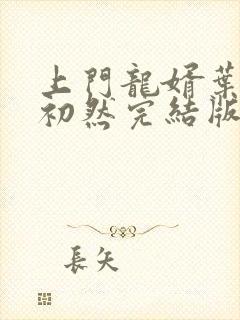 上門龍婿葉
初然完結版
長矢